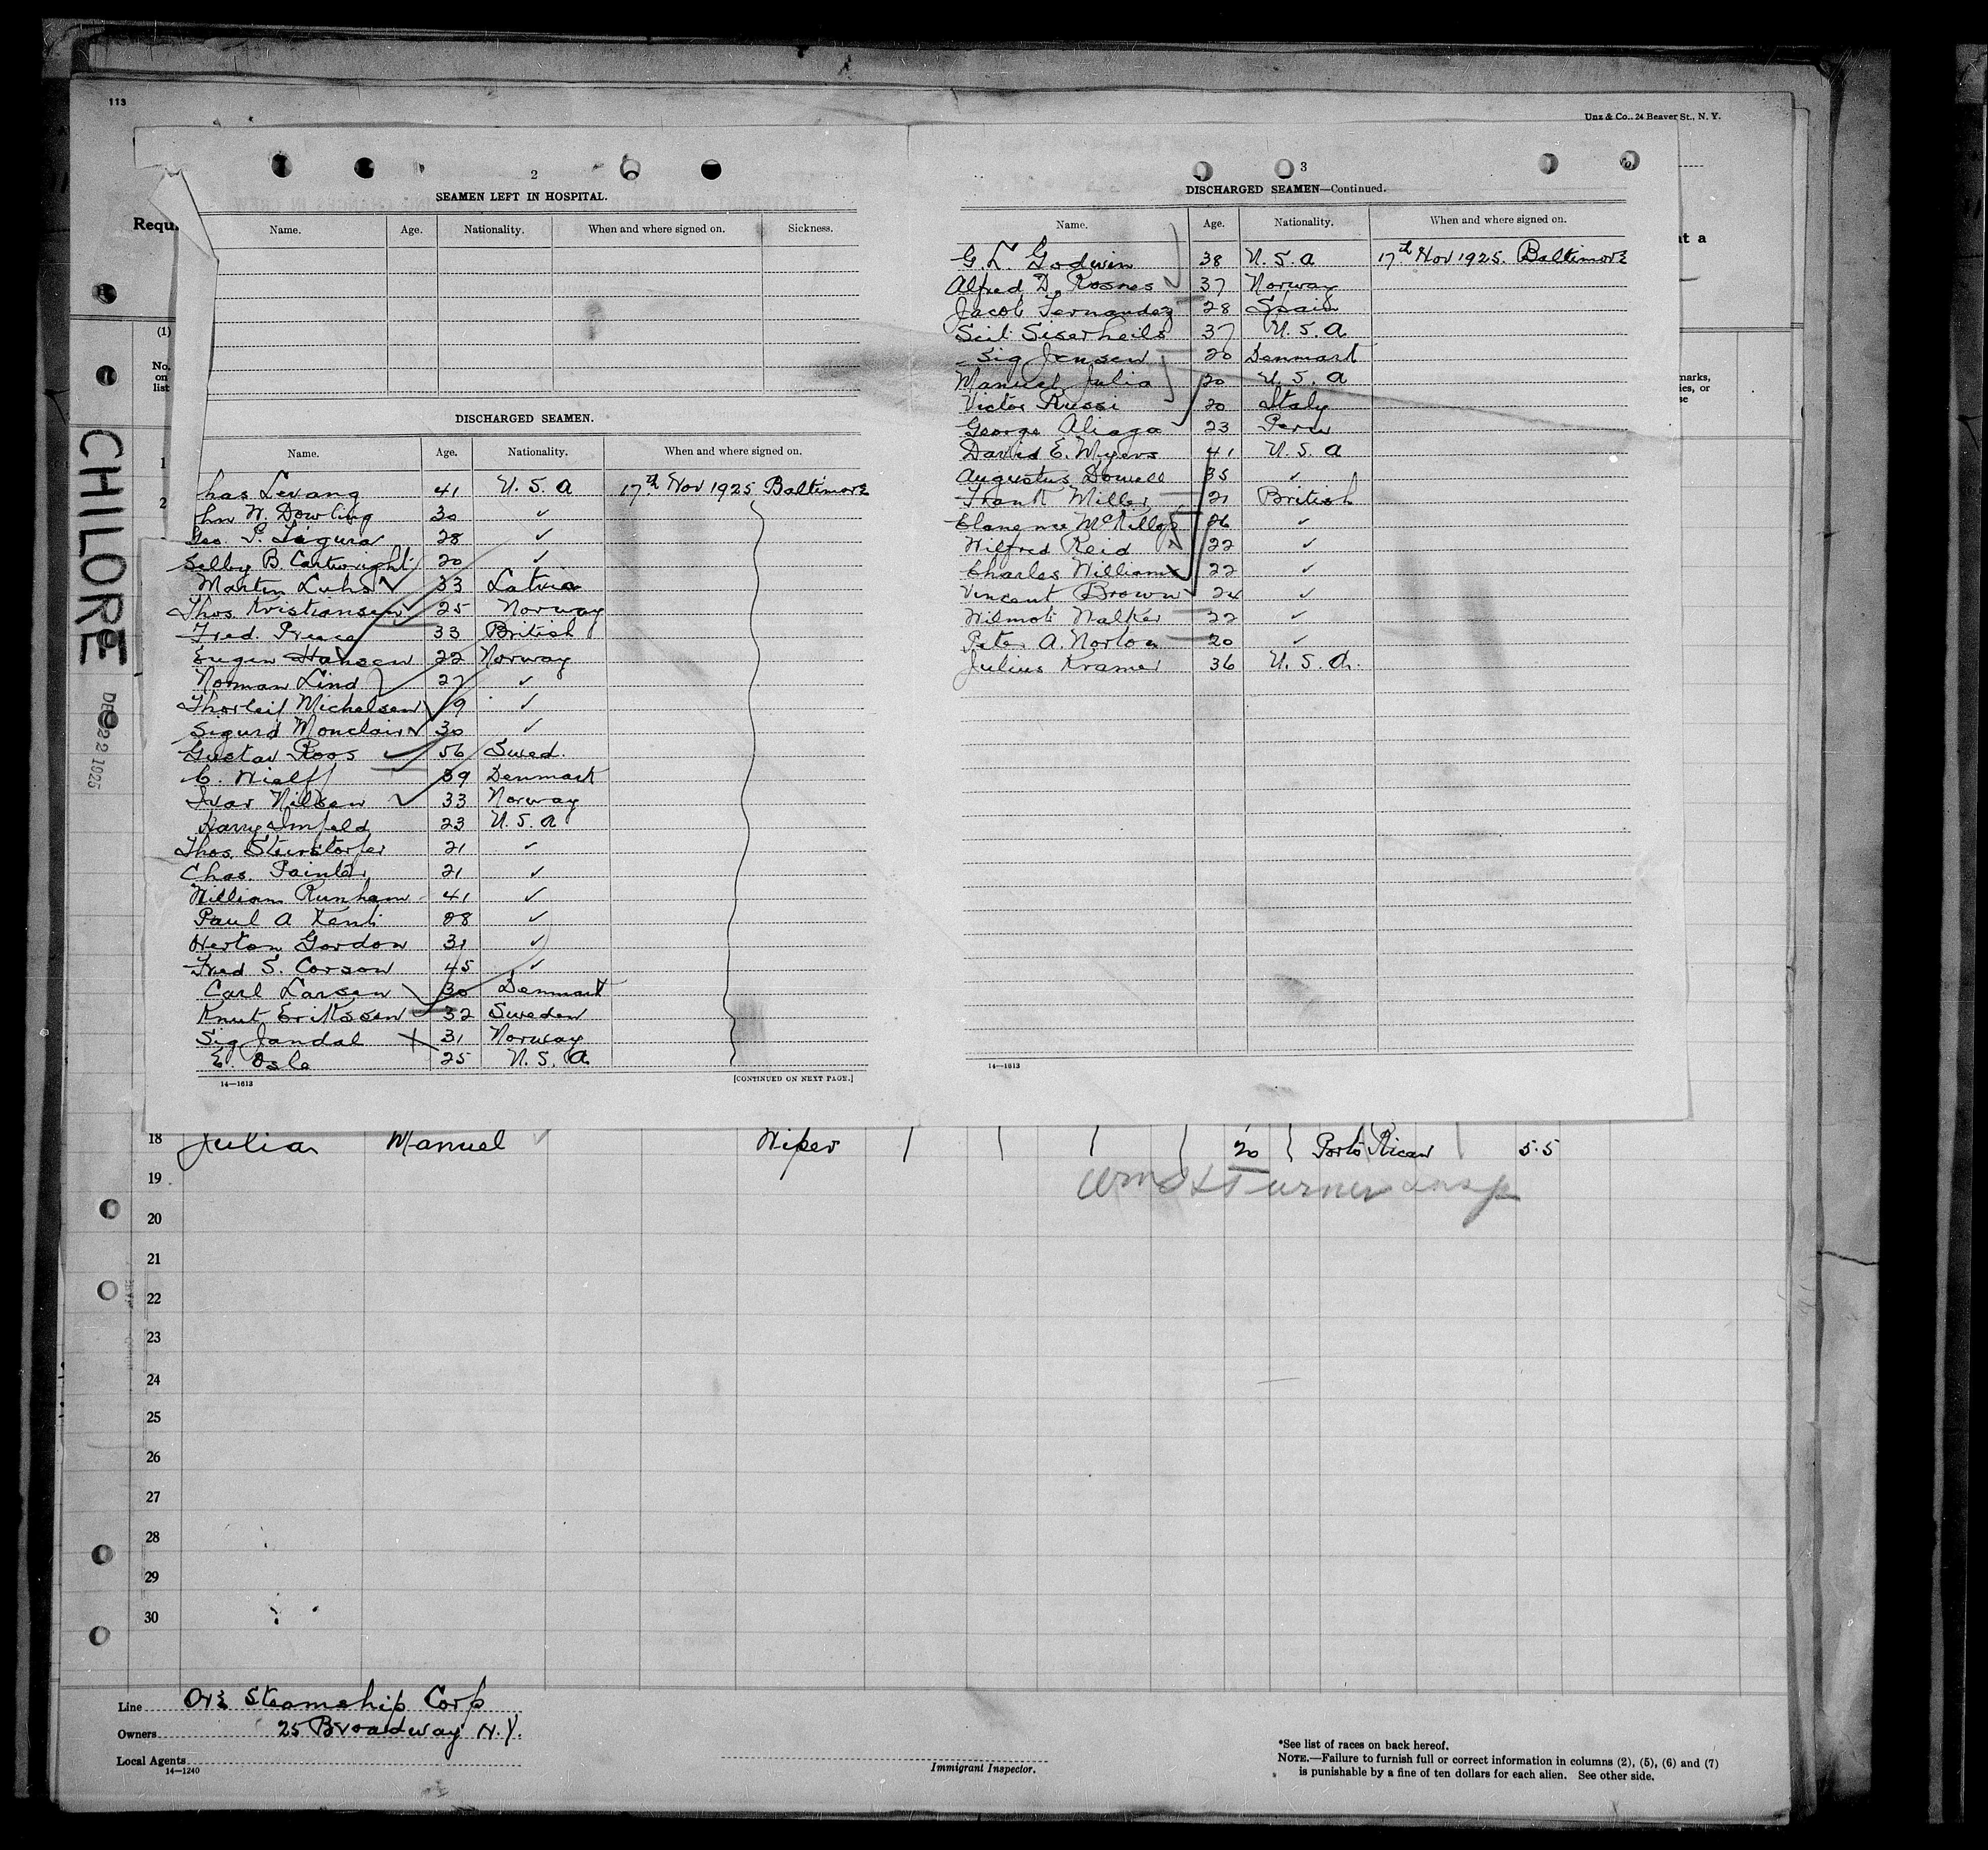 113
Unz & Co., 24 Beaver St., N. Y.
CHILORE
DEC 22 1925
Requi
at a
(1)
No. on list
1
2
2
SEAMEN LEFT IN HOSPITAL.
Name. Age. Nationality. When and where signed on. Sickness.
DISCHARGED SEAMEN.
Name. Age. Nationality. When and where signed on.
has Levang 41 U. S. A 17th Nov 1925 Baltimore
hn W. Dowling 30 ✓
Geo. S. Ligura 28 ✓
Selby B. Cartwright 20 ✓
Martin Luhs ✓ 33 Latvia
Thos. Kristiansen 25 Norway
Fred. Preece 33 British
Eugen Hansen 22 Norway
Norman Lind 27 ✓
Thorleif Michelsen 19 ✓
Sigurd Monclair 30 ✓
Gustav Roos 56 Swed.
C. Wielff 39 Denmark
Ivar Nilsen 33 Norway
Harry Imfeld 23 U. S. A
Thos. Steinstorfer 21 ✓
Chas. Painter 21 ✓
William Runham 41 ✓
Paul A Kenti 28 ✓
Herton Gordon 31 ✓
Fred S. Corson 45 ✓
Carl Larsen 30 Denmark
Knut Erikssen 32 Sweden
Sig Jandal 31 Norway
E. Oslo 25 U. S. A
14—1613 [CONTINUED ON NEXT PAGE.]
3
DISCHARGED SEAMEN—Continued.
Name. Age. Nationality. When and where signed on.
G. L. Godwin 38 U. S. A 17th Nov 1925. Baltimore
Alfred D. Rosnes 37 Norway
Jacob Fernandez 28 Spain
37 U. S. A
Sig Jensen 20 Denmark
Manuel Julia 20 U. S. A
Victor Russi 20 Italy
George Aliaga 23 Peru
David E. Myers 41 U. S. A
Augustus Dowell 35 ✓
Frank Miller 21 British
Clarence McKillop 26 ✓
Wilfred Reid 22 ✓
Charles Williams 22 ✓
Vincent Brown 24 ✓
Wilmoti Walker 22 ✓
Peter A. Norton 20 ✓
Julius Kramer 36 U. S. A.
14—1613
18 Julia Manuel Wiper 20 Porto Rican 5.5
19
20
21
22
23
24
25
26
27
28
29
30
Line Ore Steamship Corp
Owners 25 Broadway N.Y.
Local Agents
14—1240
Immigrant Inspector.
*See list of races on back hereof.
NOTE.—Failure to furnish full or correct information in columns (2), (5), (6) and (7)
is punishable by a fine of ten dollars for each alien. See other side.